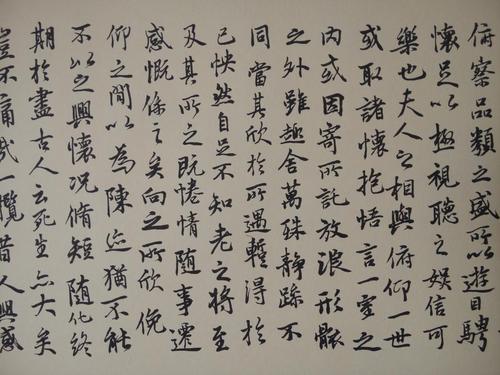 俯察品類之盛所以遊目騁
懷足以極視聽之娛信可
樂也夫人之相與俯仰一世
或取諸懷抱悟言一室之
內或因寄所託放浪形骸
之外雖趣舍萬殊靜躁不
同當其欣於所遇暫得於
己怏然自足不知老之將至
及其所之既惓情隨事遷
感慨係之矣向之所欣俛
仰之間以為陳迹猶不能
不以之興懷況脩短隨化終
期於盡古人云死生亦大矣
豈不痛哉一攬昔人興感